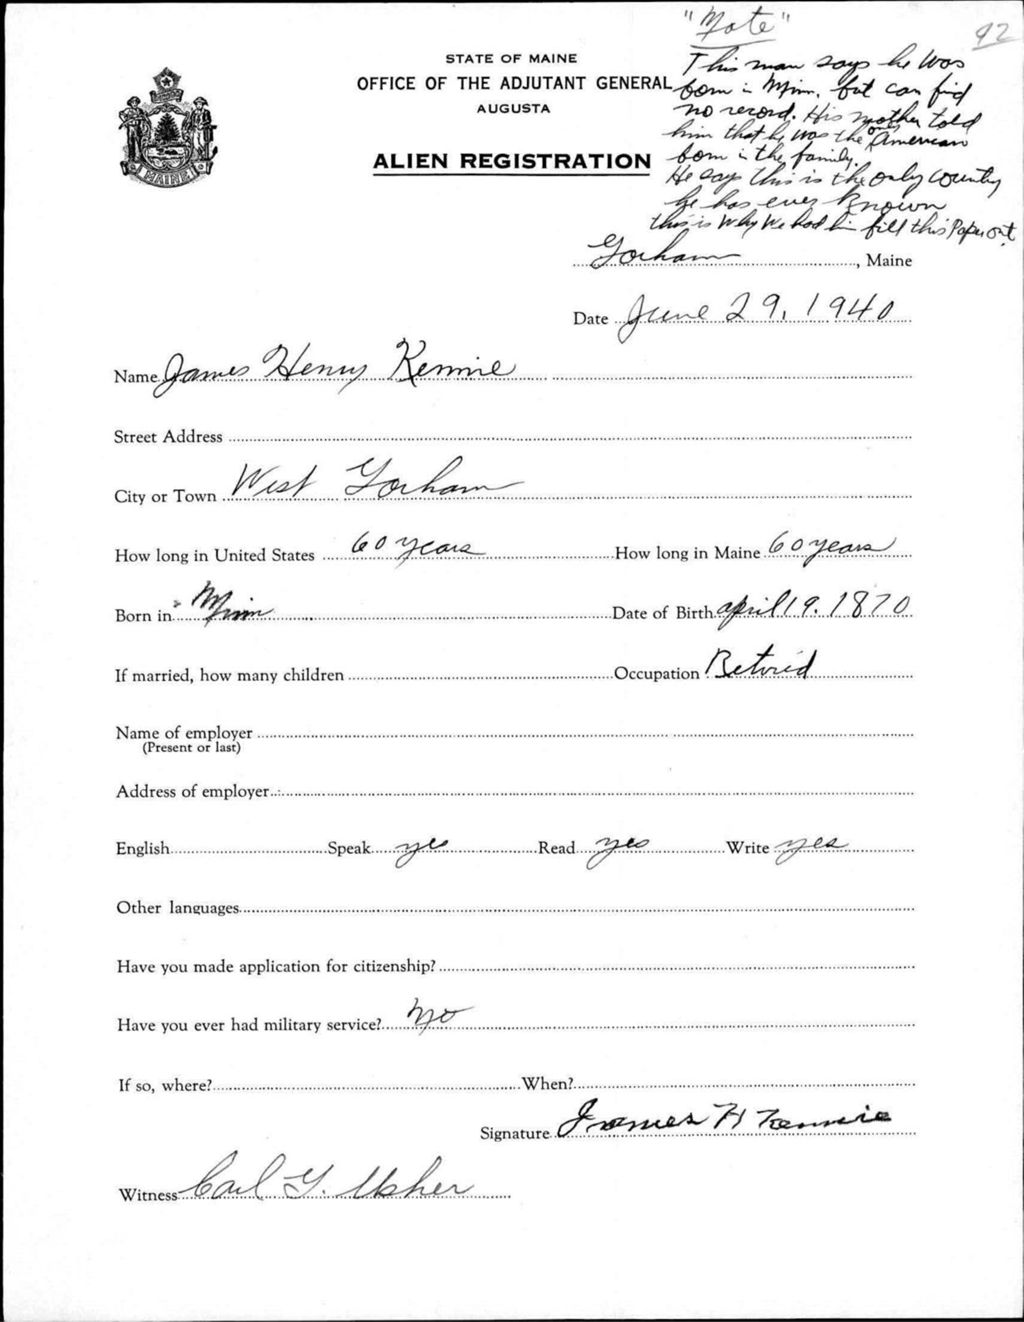 "Note"
92
This man says he was
born in Minn, but can find
no record. His mother told
him that he was the only American
born in the family.
He says this is the only country
he has ever known
this is why we had him fill this Paper out.
STATE OF MAINE
OFFICE OF THE ADJUTANT GENERAL
AUGUSTA
ALIEN REGISTRATION
MAINE
Gorham, Maine
Date June 29, 1940
Name James Henry Kennie
Street Address
City or Town West Gorham
How long in United States 60 years How long in Maine 60 years
Born in Minn Date of Birth april 19. 1870
If married, how many children Occupation Retired
Name of employer
(Present or last)
Address of employer
English Speak yes Read yes Write yes
Other languages
Have you made application for citizenship?
Have you ever had military service? No
If so, where? When?
Signature James H Kennie
Witness Carl G. Usher